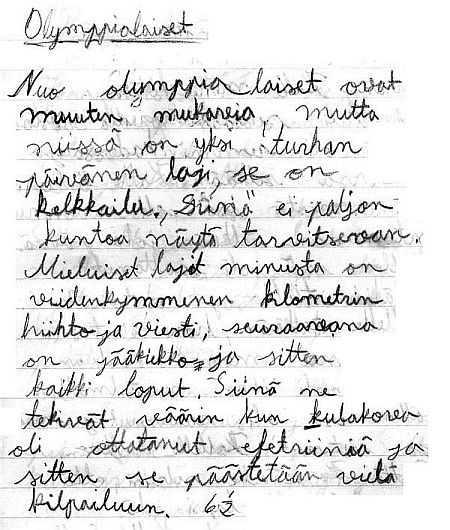 Olymppialaiset
Nuo olymppialaiset ovat
muuten mukavia, mutta
niissä on yksi turhan
päiväinen laji, se on
kelkkailu. "Siinä" ei paljon
kuntoa näytä tarvitsevan.
Mieluiset lajit minusta on
viidenkymmenen kilometrin
hiihto ja viesti, seuraavana
on jääkiekko ja sitten
kaikki loput. Siinä ne
tekivät väärin kun
oli ottatanut efetriiniä ja
sitten se päästetään vielä
kilpailuun. 6½